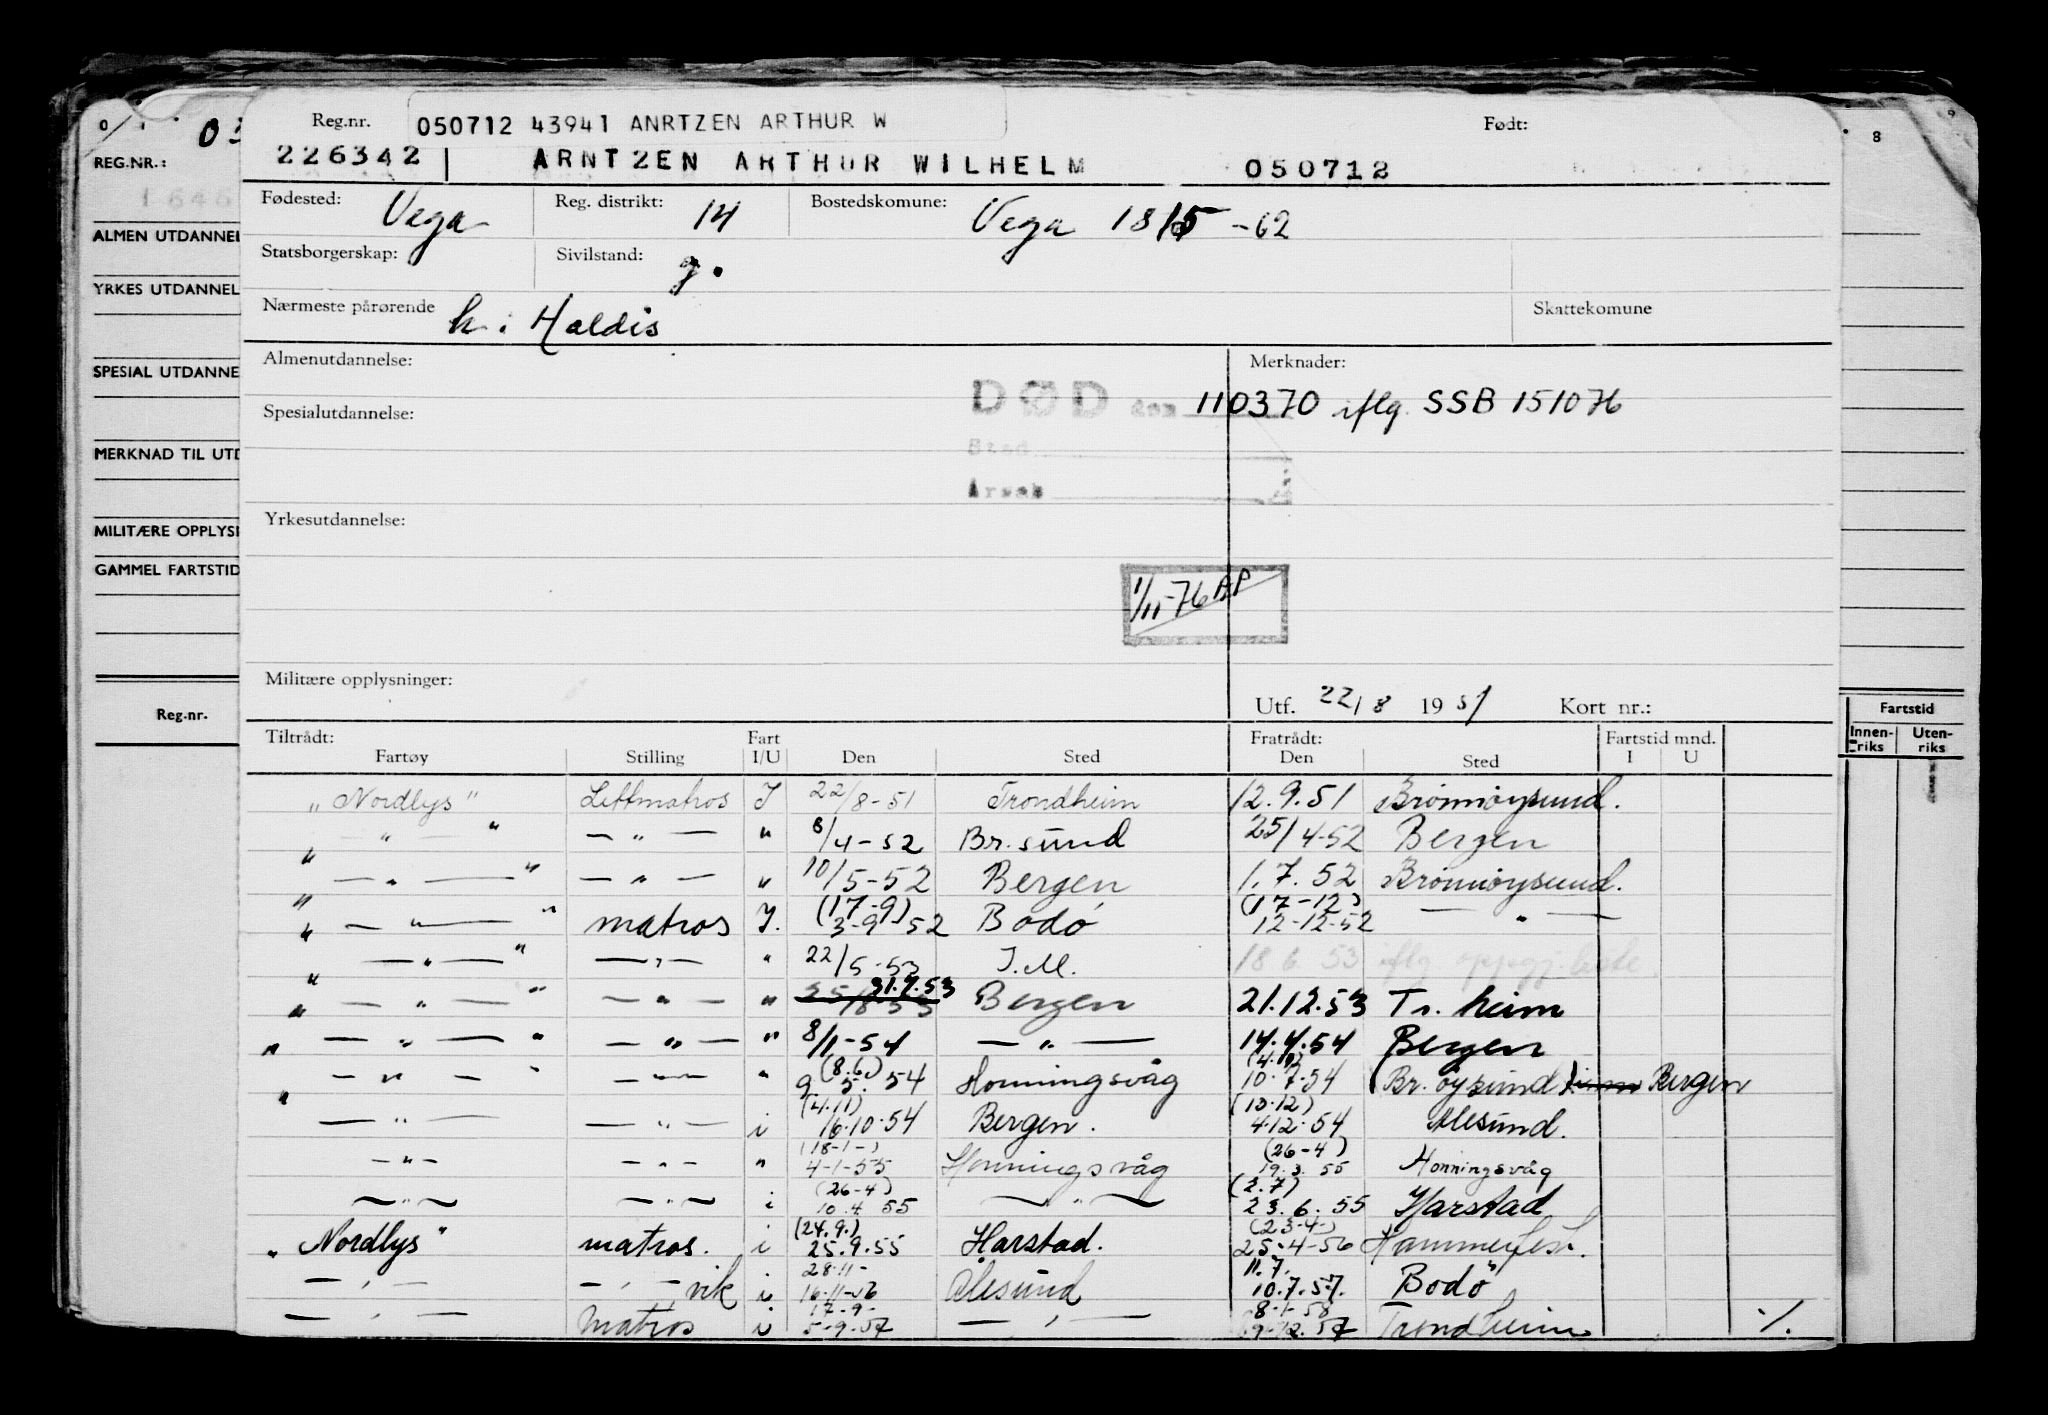 0 1 03
REG.NR.:
1646
ALMEN UTDANNEL
YRKES UTDANNEL
SPESIAL UTDANNE
MERKNAD TIL UTD
MILITÆRE OPPLYSN
GAMMEL FARTSTID
Reg.nr.
8
9
Fartstid
Innen-riks Uten-riks
Reg.nr. 050712 43941 ANRTZEN ARTHUR W Født:
226342 ARNTZEN ARTHUR WILHELM 050712
Fødested: Vega Reg. distrikt: 14 Bostedskomune: Vega 1815 -62
Statsborgerskap: Sivilstand: g.
Nærmeste pårørende h: Haldis Skattekomune
Almenutdannelse: Merknader:
DØD den 110370 iflg. SSB 151076
Spesialutdannelse:
Sted
Årsak
Yrkesutdannelse:
1/11-76 AP
Militære opplysninger:
Utf. 22/8 1951 Kort nr.:
Tiltrådt: Fart Fratrådt: Fartstid mnd.
Fartøy Stilling I/U Den Sted Den Sted I U
"Nordlys" Lettmatros I 22/8-51 Trondheim 12.9.51 Brønnøysund.
" — " — " — " — " 8/4-52 Br.sund 25/4-52 Bergen
" — " — " — " — " 10/5-52 Bergen 1.7.52 Brønnøysund.
" — " — " matros I. (17-9) 3-9 52 Bodø (17-12) 12-12-52 — " —
" — " — " — " — " 22/5-53 I.M. 18 6 53 iflg oppgj.liste
" — " — " — " — " 31.7.53 Bergen 21.12.53 Tr.heim
" — " — " — " — " 8/1-54 — " — 14.4.54 Bergen
" — " — " — " — " (8.6.) 9.5.54 Honningsvåg 10.7.54 (Br.øysund) Bergen
— " — — " — i (4.11) 16.10.54 Bergen. (10.12) 4.12.54 Ålesund.
— " — — " — " (18-1-) 4-1-55 Honningsvåg (26-4) 19.3.55 Honningsvåg
— " — — " — i (26-4) 10.4 55 — " — (2.7) 23.6.55 Harstad
"Nordlys" matros. i (24.9.) 25.9.55 Harstad. (23-4-) 25-4-56 Hammerfest.
— " — — " — vik i 28-11- 16-11-56 Ålesund 11.7. 10.7.57. Bodø
— " — Matros i 17-9- 5-9-57 — " — 8-1-58 Trondheim ./.